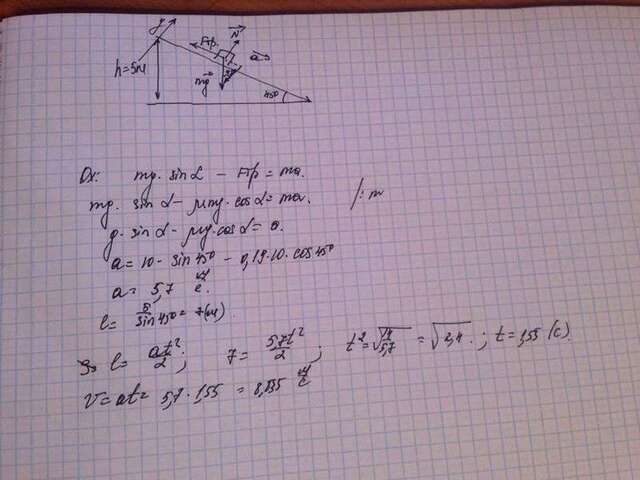 y
Fтр
N
a
h=5м
mg
45°
Ox: mg·sinα − Fтр = ma.
mg·sinα − μmg·cosα = ma. /:m
g·sinα − μg·cosα = a.
a = 10·sin45° − 0,19·10·cos45°
a = 5,7 м/с.
l = 5/sin45° = 7(м).
l = at²/2; 7 = 5,7t²/2; t² = √14/5,7 = √2,4.; t = 1,55 (с).
V = at = 5,7·1,55 = 8,835 м/с